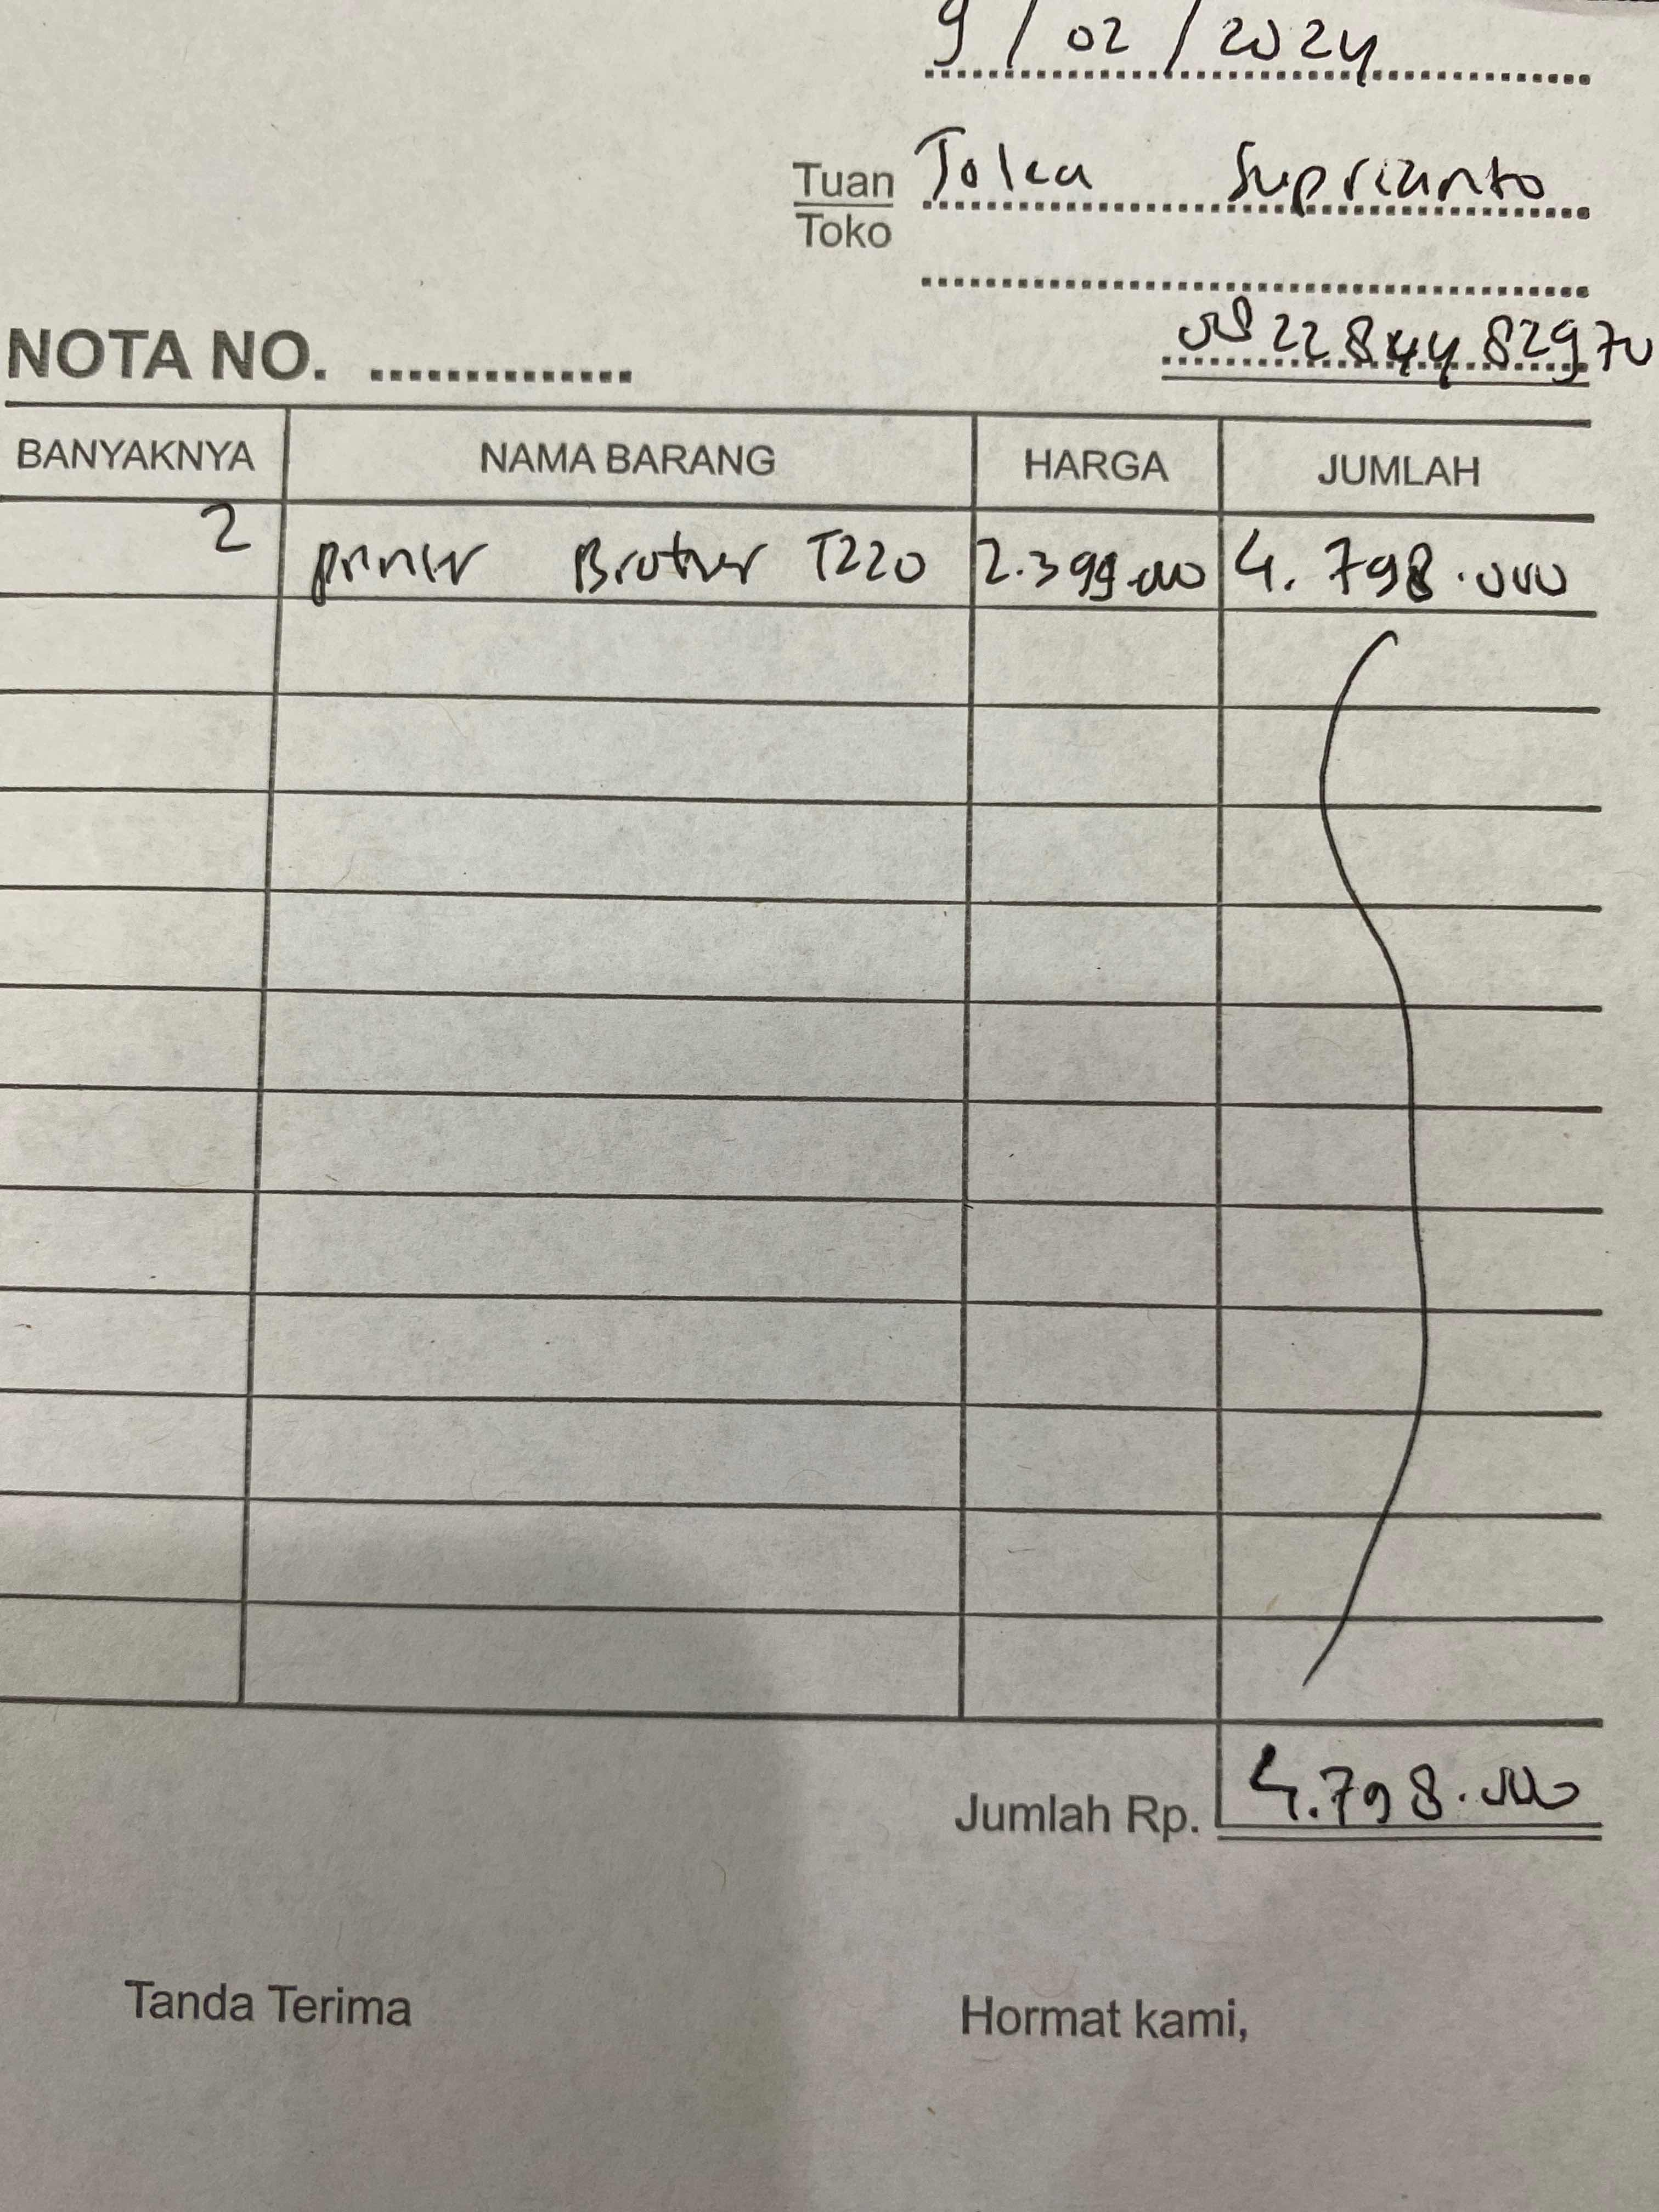 9 / 02 / 2024
Tuan Joka Suprianto
Toko
NOTA NO. ............... 082284482970
BANYAKNYA NAMA BARANG HARGA JUMLAH
2 printer Brother T220 2.399.000 4.798.000
Jumlah Rp. 4.798.000
Tanda Terima Hormat kami,